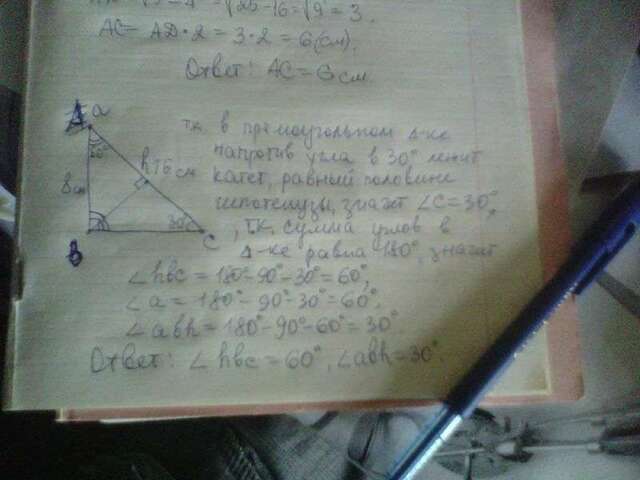 = √25-16 = √9 = 3.
AC = AD·2 = 3·2 = 6 (см).
Ответ: AC = 6 см.
A a
т.к. в прямоугольном Δ-ке
напротив угла в 30° лежит
катет, равный половине
гипотенузы, значит ∠C = 30°,
, т.к. сумма углов в
Δ-ке равна 180°, значит
60°
h 16 см
8 см
30°
B
C
∠hbc = 180°-90°-30° = 60°,
∠a = 180°-90°-30° = 60°.
∠abh = 180°-90°-60° = 30°
Ответ: ∠hbc = 60°, ∠abh = 30°.